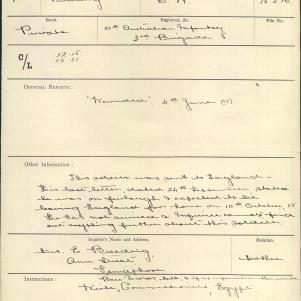 Rank.
Regiment, &c.
File No.
Private
10th Australian Infantry
3rd Brigade
C/L
OFFICIAL REPORTS:
"Wounded" 4th June (15)
Other Information:
This soldier was sent to England -
his last letter, dated 24th September, states
he was on furlough & expected to be
leaving England for home on 10th October, 15
He has not arrived & inquirer cannot find
out anything further about this soldier
Inquirer's Name and Address.
Relation.
Mrs. E.
Ann Street
Mother
Instructions:
Write, Commissioners, Egypt